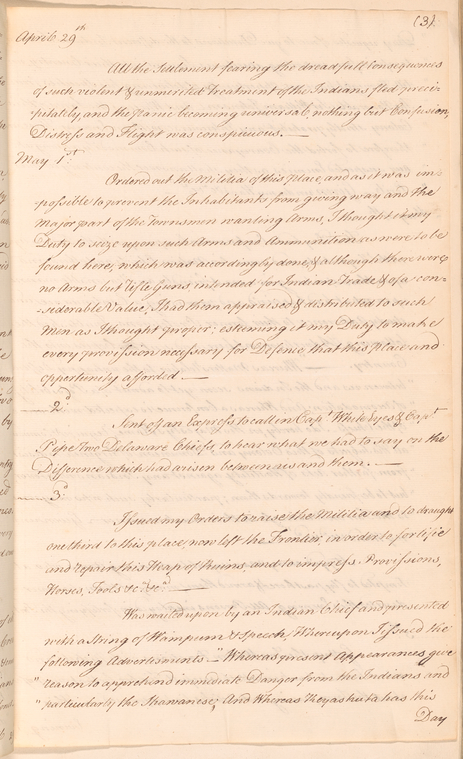 (3)
April 29th
All the Settlement fearing the dreadfull Consequences
of such violent & unmerited Treatment of the Indians fled preci-
pitately, and the Panic becoming universal, nothing but Confusion,
Distress and Flight was conspicuous. —
May 1st
Ordered out the Militia of this place, and as it was im-
possible to prevent the Inhabitants from giving way and the
Major part of the Townsmen wanting Arms, I thought it my
Duty to seize upon such Arms and Ammunition as were to be
found here, which was accordingly done, & although there were
no Arms but Rifle Guns intended for Indian Trade & of a con-
-siderable Value, I had them appraised & distributed to such
Men as I thought proper; esteeming it my Duty to make
every provission necessary for Defence, that this place and
opportunity afforded —
— 2d
Sent of an Express to call in Capt White Eyes & Capt
Pipe Two Delaware Chiefs, to hear what we had to say on the
Difference which had arisen between us and them. —
— 3d
Issued my Orders to raise the Militia and to draught
one third to this place, now left the Frontier, in order to fortifie
and repair this Heap of Ruins, and to impress Provissions,
Horses, Tools &c &ca —
Was waited upon by an Indian Chief and presented
with a String of Wampum & Speech, Whereupon I issued the
following Advertisments — "Whereas present Appearances give
" reason to apprehend immediate Danger from the Indians and
" particularly the Shawanese; And Whereas Keyashuta has this
Day